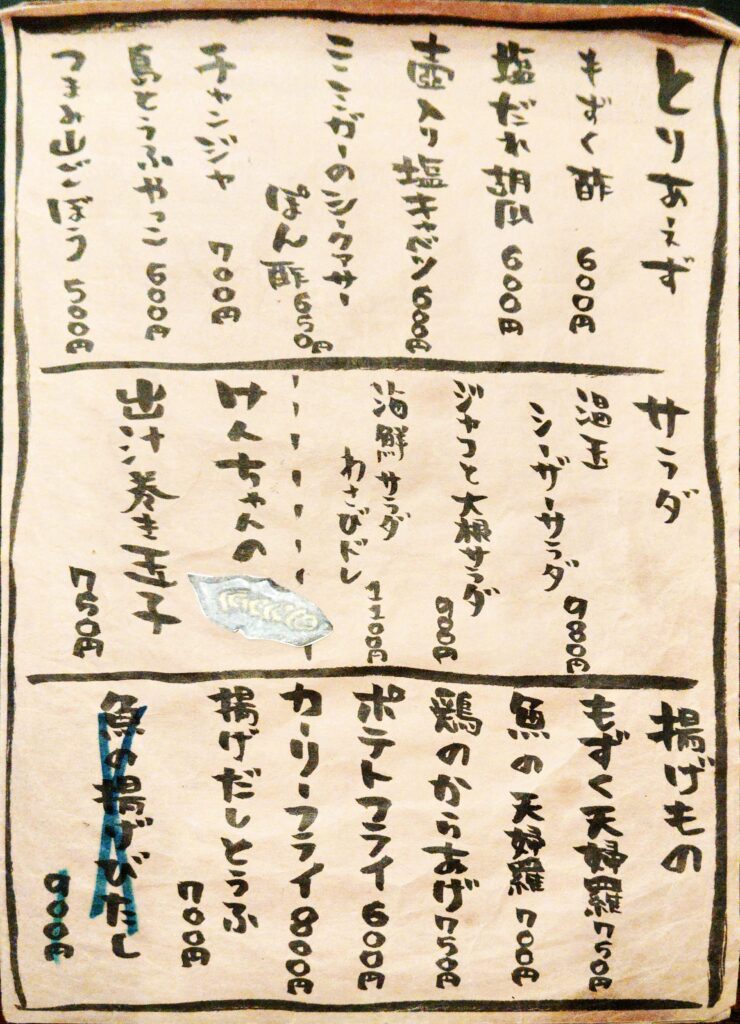 とりあえず
もずく酢 600円
塩だれ胡瓜 600円
壺入り塩キャベツ 600円
ミミガーのシークァサー
ぽん酢 650円
チャンジャ 700円
島とうふやっこ 600円
つまみ山ごぼう 500円
サラダ
温玉
シーザーサラダ 980円
ジャコと大根サラダ 900円
海鮮サラダ
わさびドレ 1100円
けんちゃんの
出汁巻き玉子
750円
揚げもの
もずく天婦羅 750円
魚の天婦羅 700円
鶏のからあげ 750円
ポテトフライ 600円
カーリーフライ 800円
揚げだしとうふ
700円
魚の揚げびたし
900円